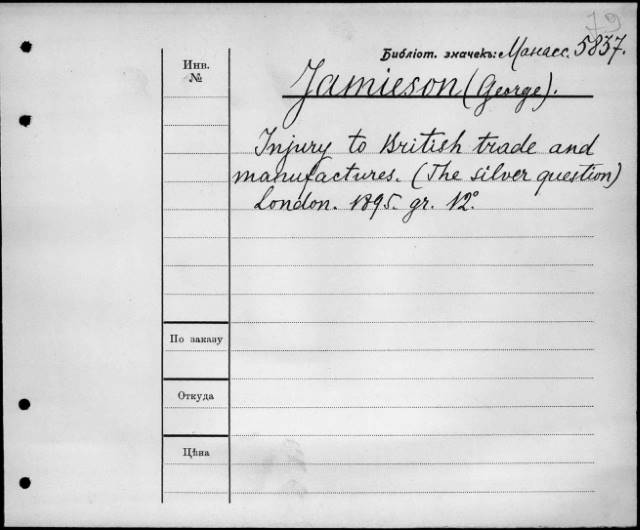 79
Библіот. значекъ: Манасс. 5837.
Инв.
№
Jamieson (George).
Injury to British trade and
manufactures. (The silver question)
London. 1895. gr. 12°.
По заказу
Откуда
Цѣна